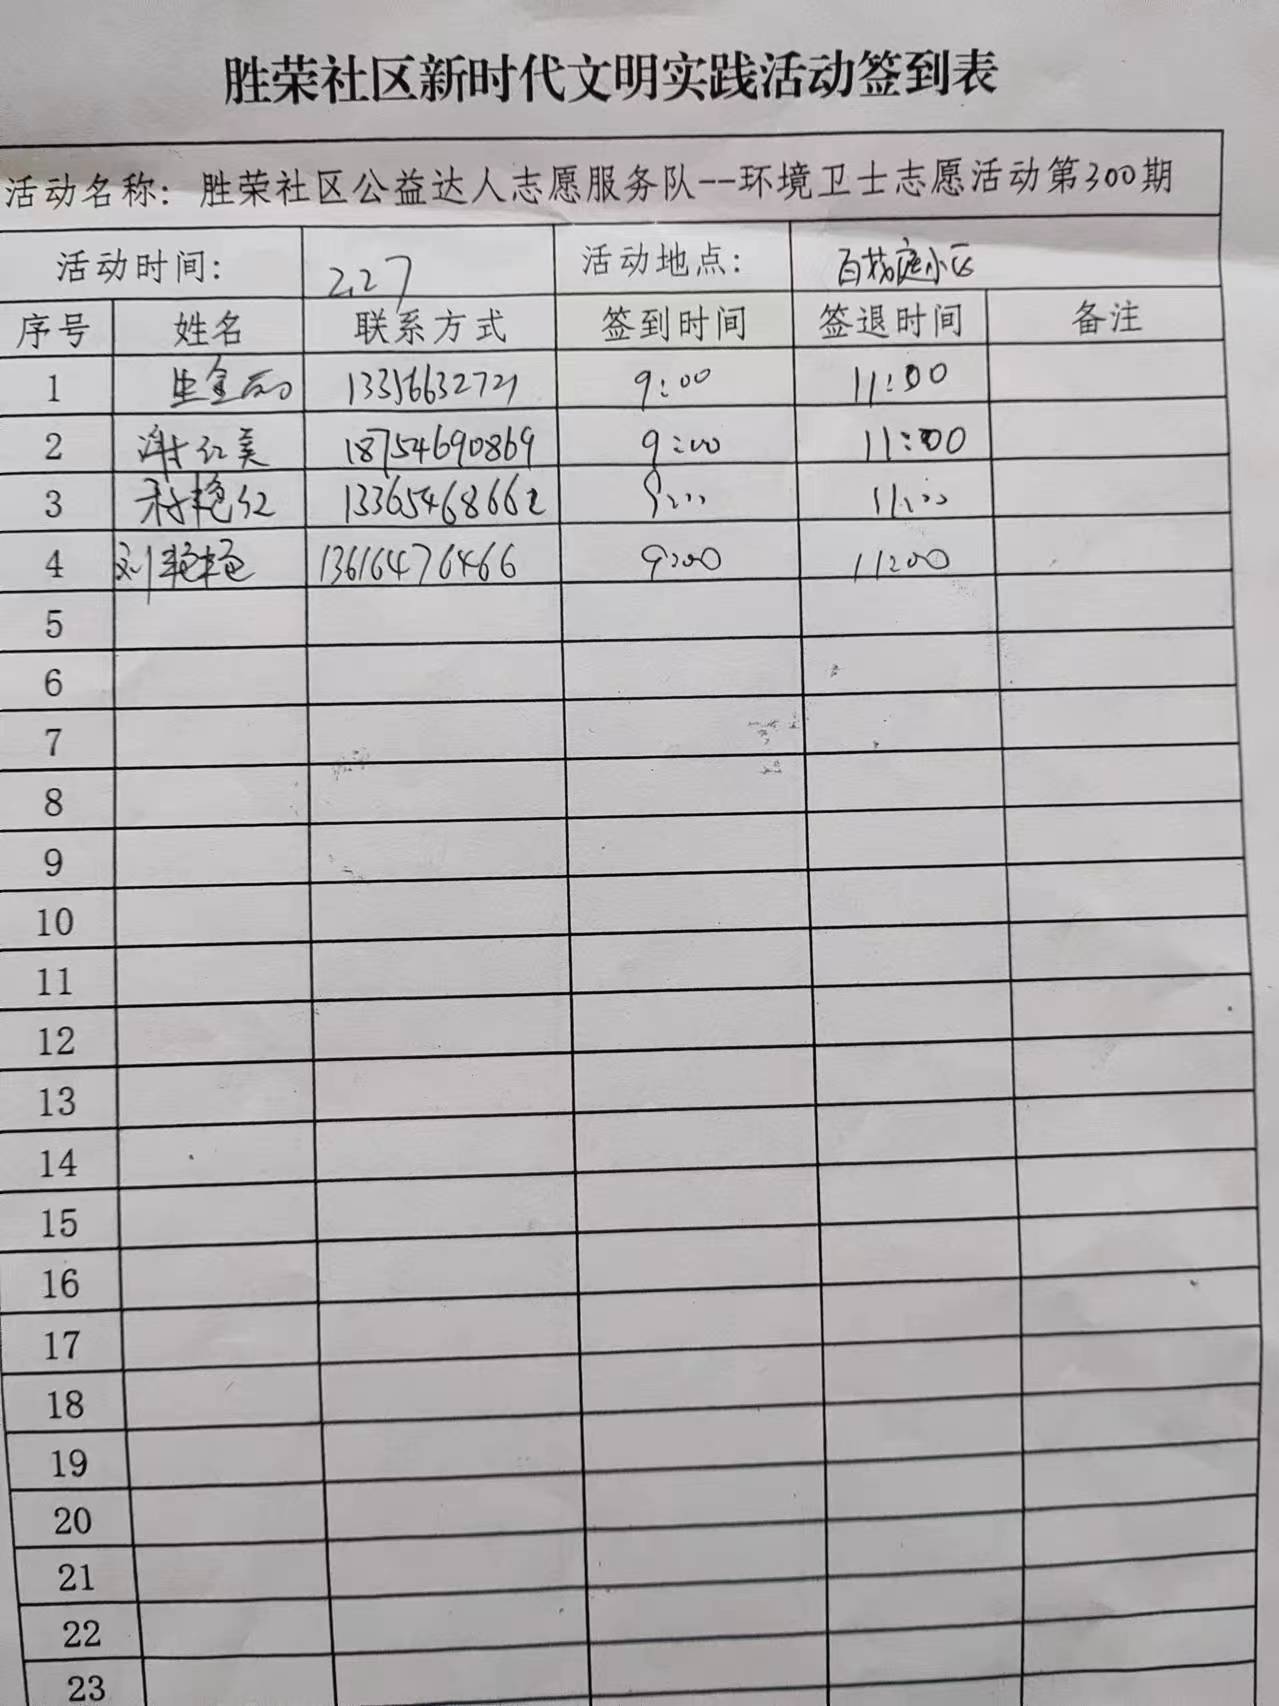 胜荣社区新时代文明实践活动签到表
活动名称：胜荣社区公益达人志愿服务队--环境卫士志愿活动第300期
活动时间： 2.27 活动地点： 百花庭小区
序号 姓名 联系方式 签到时间 签退时间 备注
1 9:00 11:00
2 谢红美 18754690869 9:00 11:00
3 艳红 13365468662 9:00 11:00
4 刘艳艳 13616476466 9:00 11:00
5
6
7
8
9
10
11
12
13
14
15
16
17
18
19
20
21
22
23